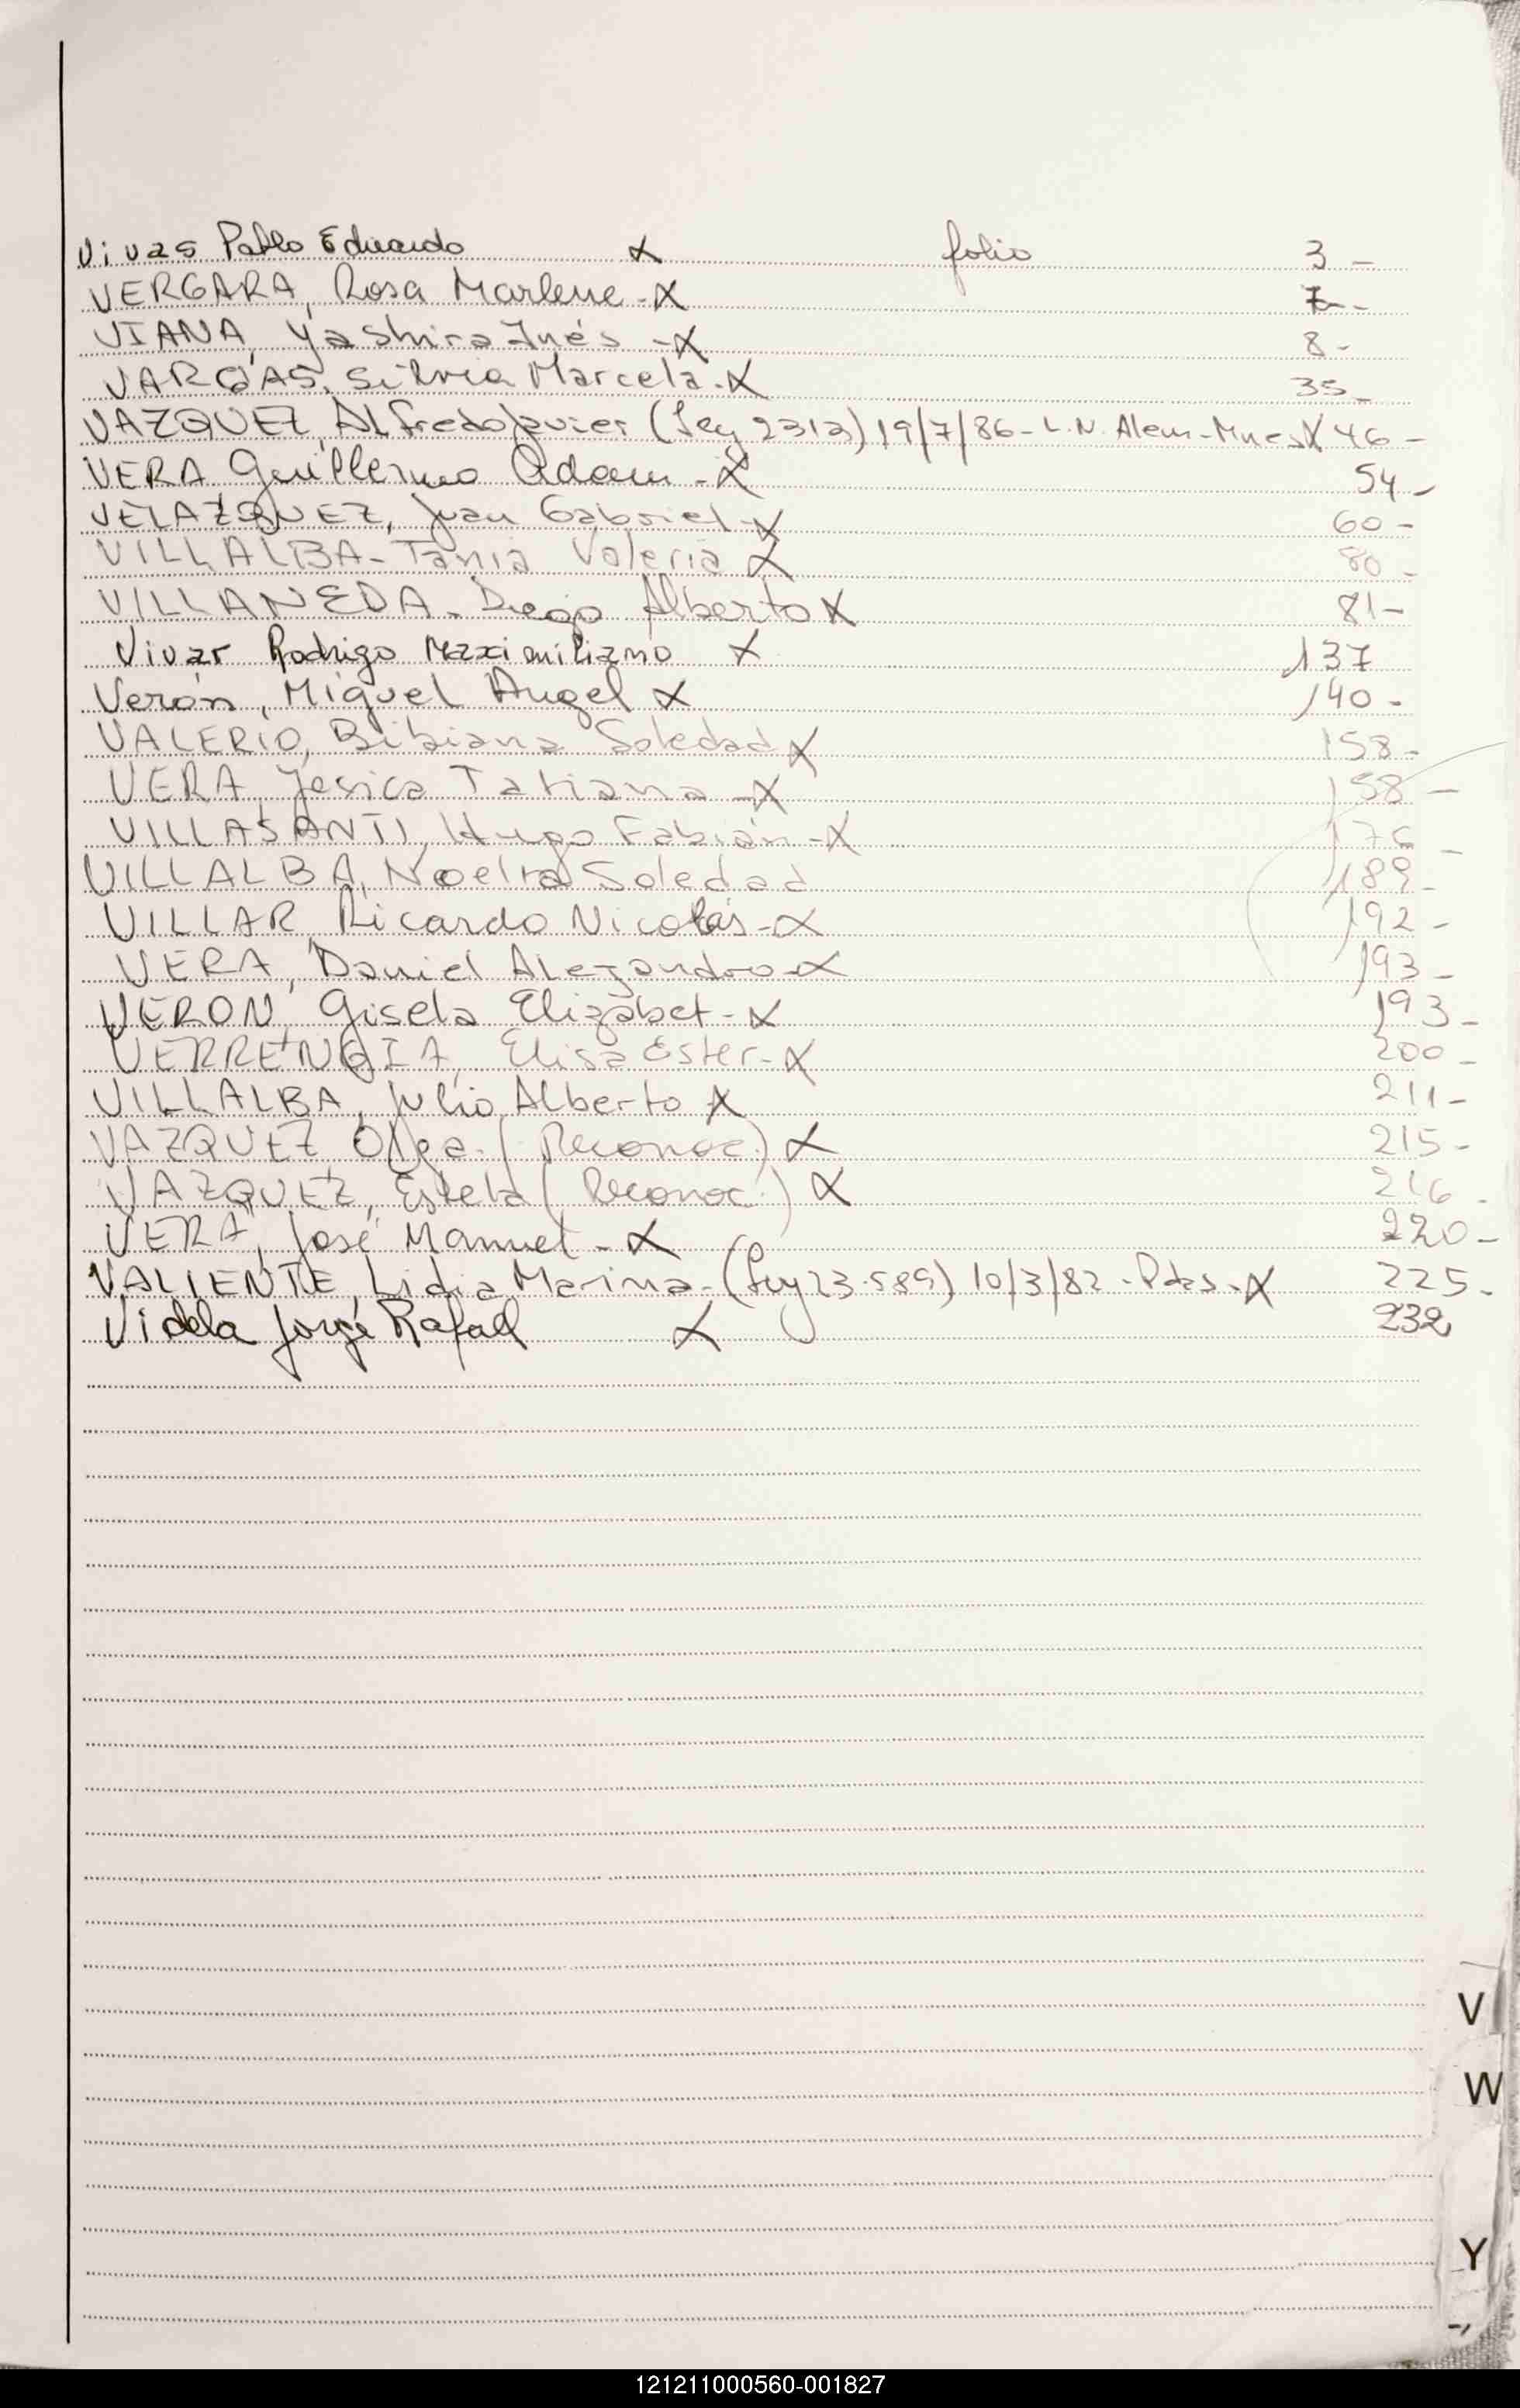 Vivas Pablo Eduardo X folio 3 -
VERGARA, Rosa Marlene - X 7 -
VIANA, Yashira Inés - X 8 -
VARGAS, Silvia Marcela - X 35 -
VAZQUEZ, Alfredo Javier (Ley 2313) 19/7/86 - L.N. Alem - Mnes X 46 -
VERA Guillermo Adam - X 54 -
VELAZQUEZ, Juan Gabriel X 60 -
VILLALBA - Tania Valeria X 80 -
VILLANEDA - Diego Alberto X 81 -
Vivar Rodrigo Maximiliano X 137
Verón, Miguel Angel X 140 -
VALERIO, Bibiana Soledad X 158 -
VERA, Jesica Tatiana - X 158 -
VILLASANTI, Hugo Fabián - X 176 -
VILLALBA, Noelia Soledad 189 -
VILLAR Ricardo Nicolás - X 192 -
VERA, Daniel Alejandro - X 193 -
VERON, Gisela Elizabet - X 193 -
VERRENGIA, Elisa Ester - X 200 -
VILLALBA, Julio Alberto X 211 -
VAZQUEZ Olga. (Reconoc.) X 215 -
VAZQUEZ, Estela (Reconoc.) X 216 -
VERA, José Manuel - X 220 -
VALIENTE, Lidia Marina - (Ley 23.589) 10/3/82 - Pdas - X 225 -
Videla Jorge Rafael X 232
V
W
Y
121211000560-001827